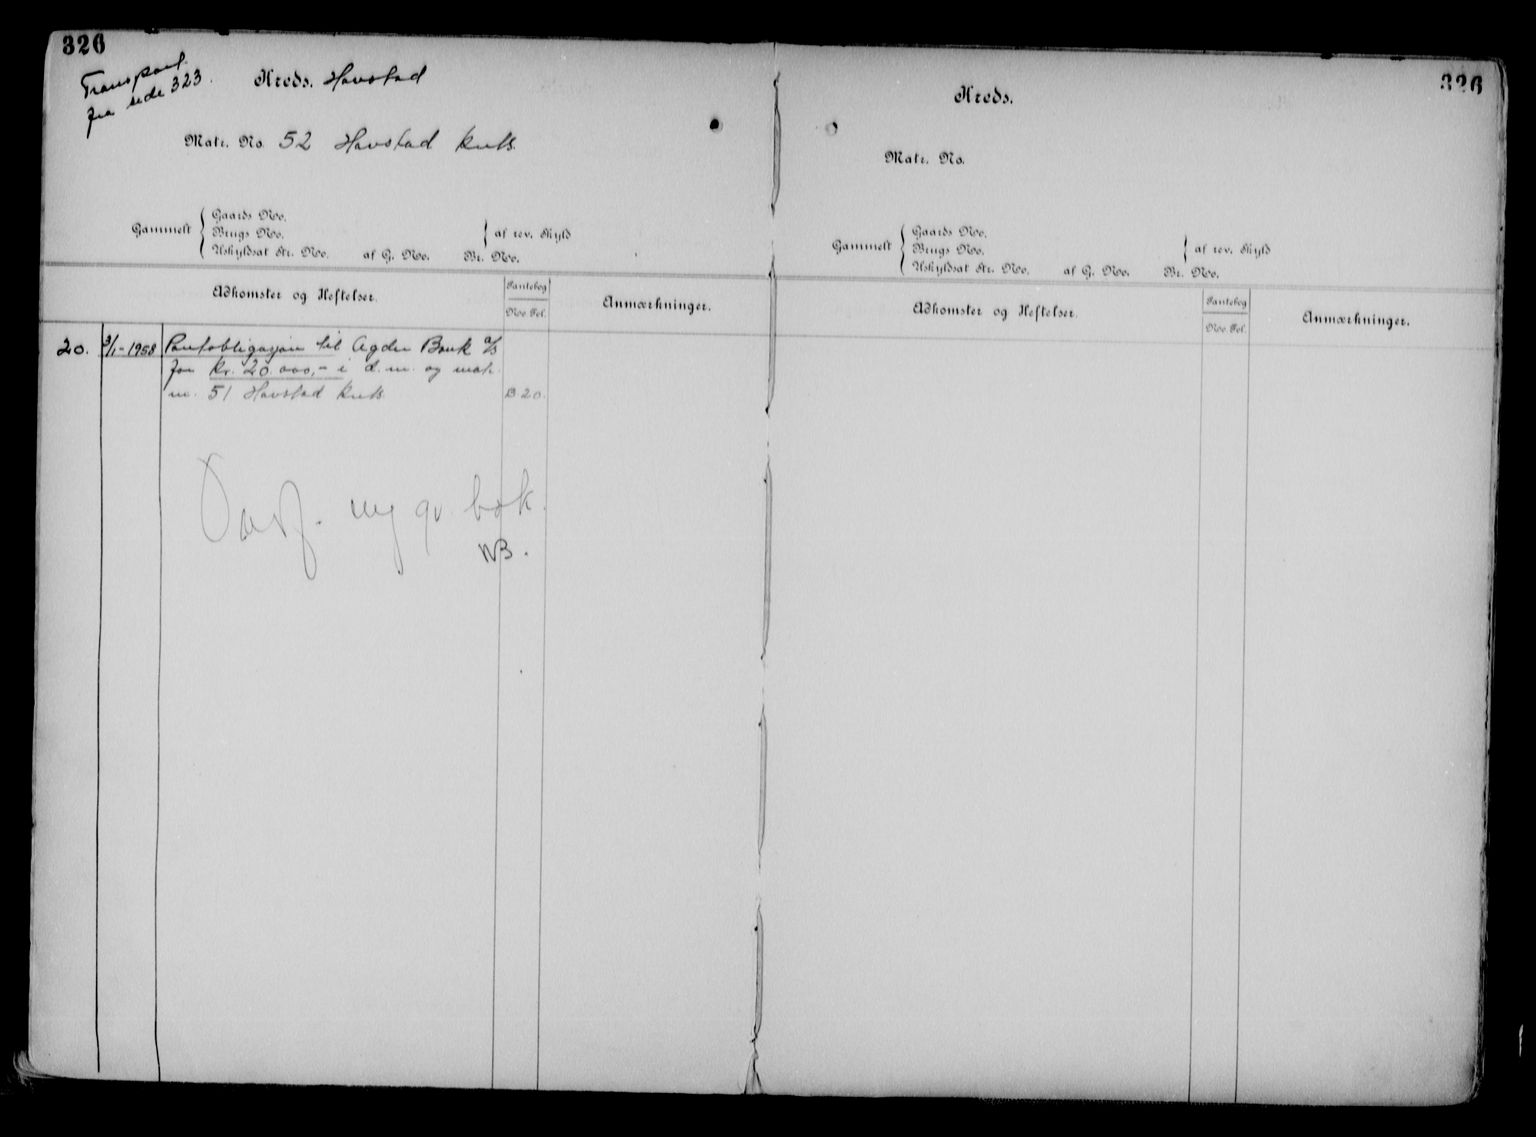 326
Transport
fra side 323.
Kreds. Havstad
Matr. No. 52 Havstad
Gammelt { Gaards No.
Brugs No.
Uskyldsat Str. No. af G. No. Br. No. } af rev. Skyld
Adkomster og Heftelser.
Pantebog
No. Fol.
Anmærkninger.
20. 3/1-1958 Pantobligasjon til Agder Bank A/S
for kr. 20.000,- i d. m. og matr.
nr. 51 Havstad B 20.
Overf. ny gr. bok.
NB.
326
Kreds.
Matr. No.
Gammelt { Gaards No.
Brugs No.
Uskyldsat Str. No. af G. No. Br. No. } af rev. Skyld
Adkomster og Heftelser.
Pantebog
No. Fol.
Anmærkninger.